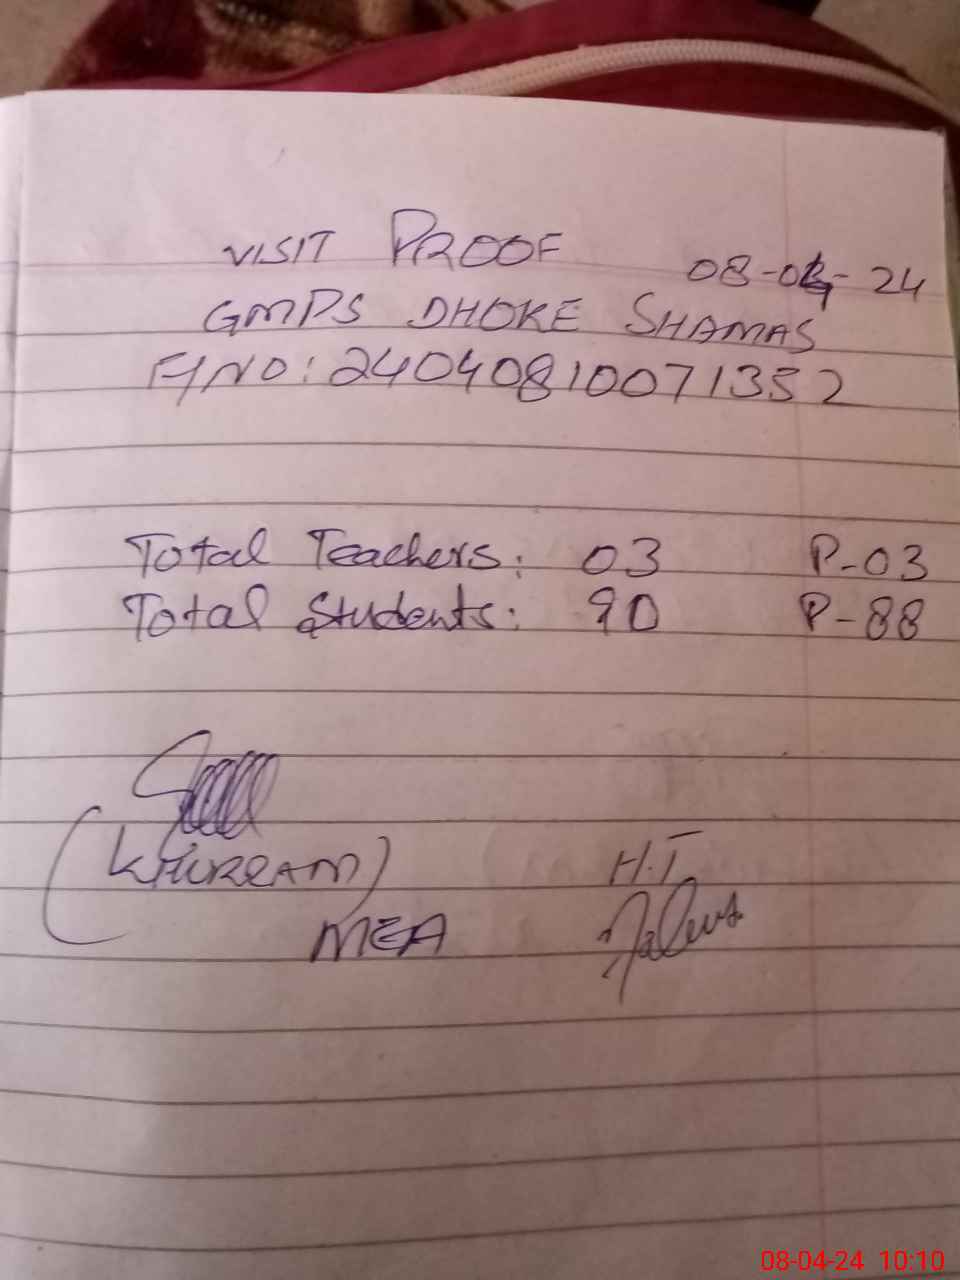 VISIT PROOF 08-04-24
GMPS DHOKE SHAMAS
F/NO: 24040810071352
Total Teachers: 03 P-03
Total Students: 90 P-88
(KHURRAM) H.T
MEA
08-04-24 10:10